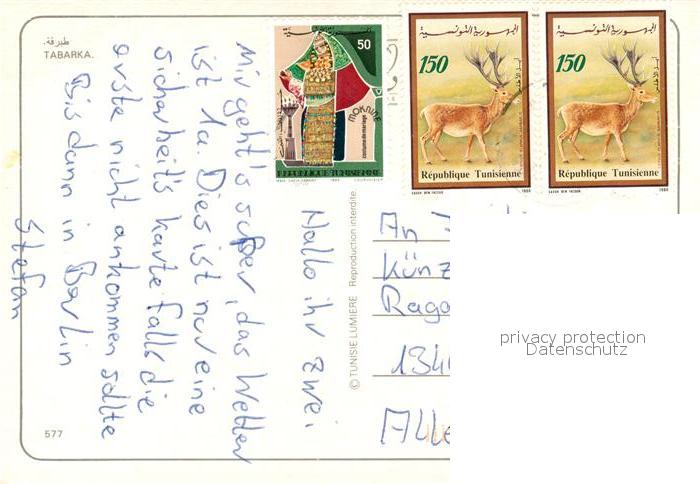 طبرقة.
TABARKA.
50
MOKNINE
costume de mariage
REPUBLIQUE TUNISIENNE
الجمهورية التونسية
150
République Tunisienne
1988
الجمهورية التونسية
150
République Tunisienne
1988
© TUNISIE LUMIERE Reproduction interdite.
Hallo ihr zwei
Mir geht's super, das Wetter
ist 1a. Dies ist nur eine
Sicherheit's karte falls die
erste nicht ankommen sollte
Bis dann in Berlin
Stefan
An
Künz
Raga
134
Alle
577
privacy protection
Datenschutz